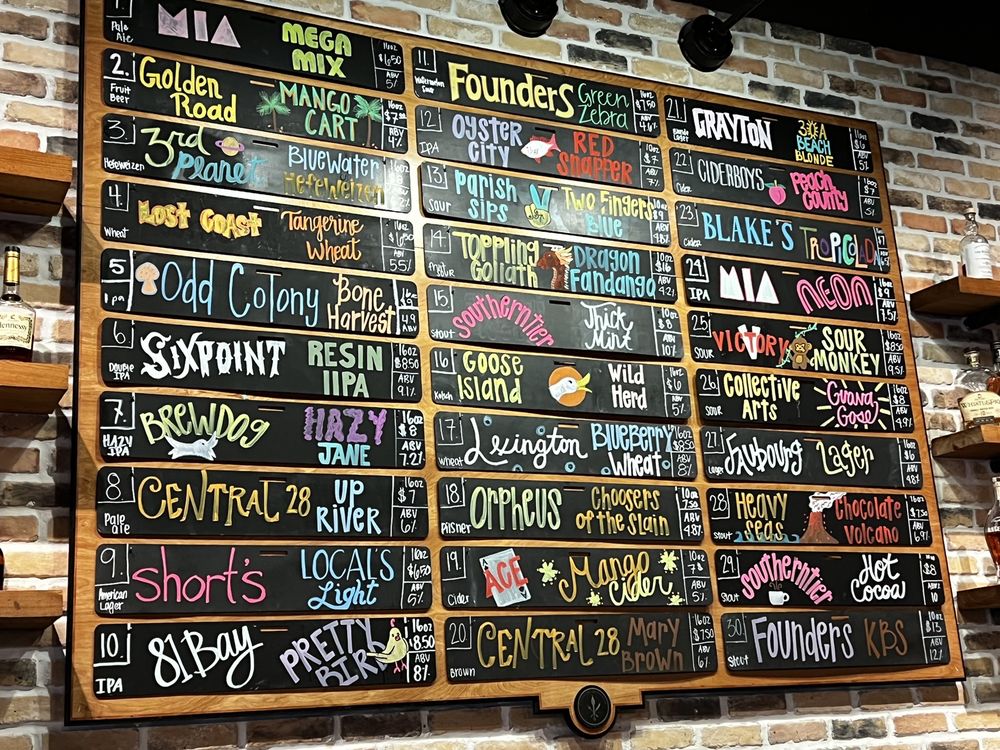 1.
Pale Ale
MIA
MEGA MIX
16oz
$6.50
ABV
5%
2.
Fruit Beer
Golden Road
MANGO CART
16oz
ABV
4%
3.
Hefeweizen
3rd Planet
Bluewater Hefeweizen
16oz
4.
Wheat
Lost Coast
Tangerine Wheat
16oz
ABV
5.5%
5
IPA
Odd Colony
Bone Harvest
16oz
ABV
6.
Double IPA
SIXPOINT
RESIN IIPA
16oz
$8.50
ABV
9.1%
7.
HAZY IPA
BREWDOG
HAZY JANE
16oz
$8
ABV
7.2%
8.
Pale ale
CENTRAL 28
UP RIVER
16oz
$7
ABV
6%
9.
American Lager
Short's
LOCAL'S Light
16oz
$6.50
ABV
5%
10.
IPA
81Bay
PRETTY BIRD
16oz
$8.50
ABV
8%
11.
Watermelon Sour
Founders
Green Zebra
16oz
$7.50
ABV
4.6%
12
IPA
OYSTER CITY
RED SNAPPER
10oz
$7
ABV
7%
13
Sour
Parish Sips
Two Fingers Blue
ABV
4.8%
14
TOPPLING Goliath
Dragon Fandango
10oz
$6
ABV
4.2%
15
Stout
Southerntier
Thick Mint
10oz
$8
ABV
10%
16
Kolsch
GOOSE Island
Wild Herd
16oz
$6
ABV
5%
17.
Wheat
Lexington
Blueberry Wheat
16oz
$8.50
ABV
8%
18.
Pilsner
ORPHEUS
Choosers of the Slain
10oz
7.50
ABV
4.8%
19.
Cider
ACE
Mango Cider
10oz
7$
ABV
5%
20
Brown
CENTRAL 28
Mary Brown
16oz
$7.50
ABV
6%
21
Blonde Lager
GRAYTON
30A BEACH BLONDE
16oz
ABV
22
Cider
CIDERBOYS
Peach County
10oz
$7
ABV
5%
23
Cider
BLAKE'S
TROPICOLADA
24
IPA
MIA
NEON
16oz
$9
ABV
7.5%
25
Sour
VICTORY
SOUR MONKEY
16oz
$8.50
ABV
9.5%
26
Sour
Collective Arts
Guava Gose
16oz
$8
ABV
4.9%
27
Lager
Faubourg
Lager
16oz
$6
ABV
28
Stout
HEAVY Seas
Chocolate Volcano
10oz
$7.50
ABV
6.9%
29.
Stout
Southerntier
Hot Cocoa
$8
ABV
10
30
Stout
Founders
KBS
10oz
ABV
12%
Hennessy